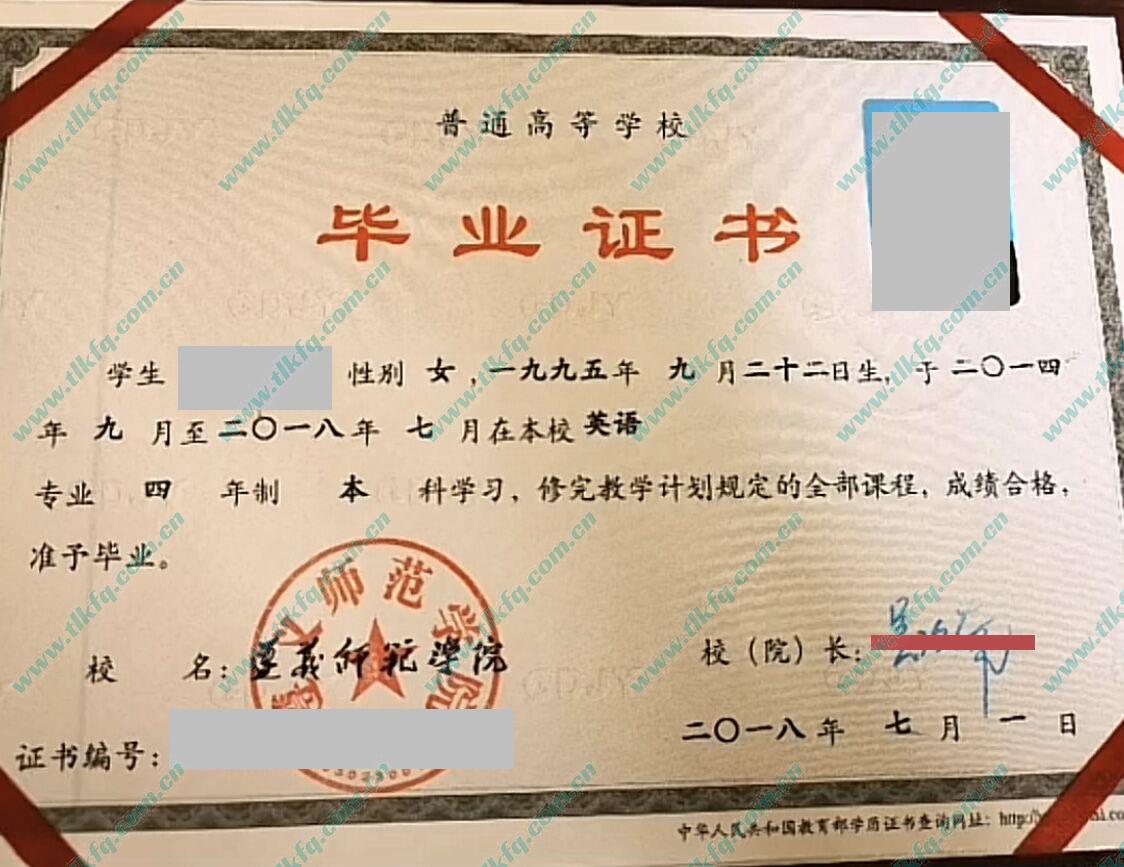 普通高等学校
毕业证书
学生 性别 女，一九九五年 九 月二十二日生，于二〇一四
年 九 月至二〇一八年 七 月在本校 英语
专业 四 年制 本 科学习，修完教学计划规定的全部课程，成绩合格，
准予毕业。
师范学院
校 名：遵义师范学院
校（院）长：
证书编号：
二〇一八年 七 月 一 日
中华人民共和国教育部学历证书查询网址：http://
www.tlkfq.com.cn